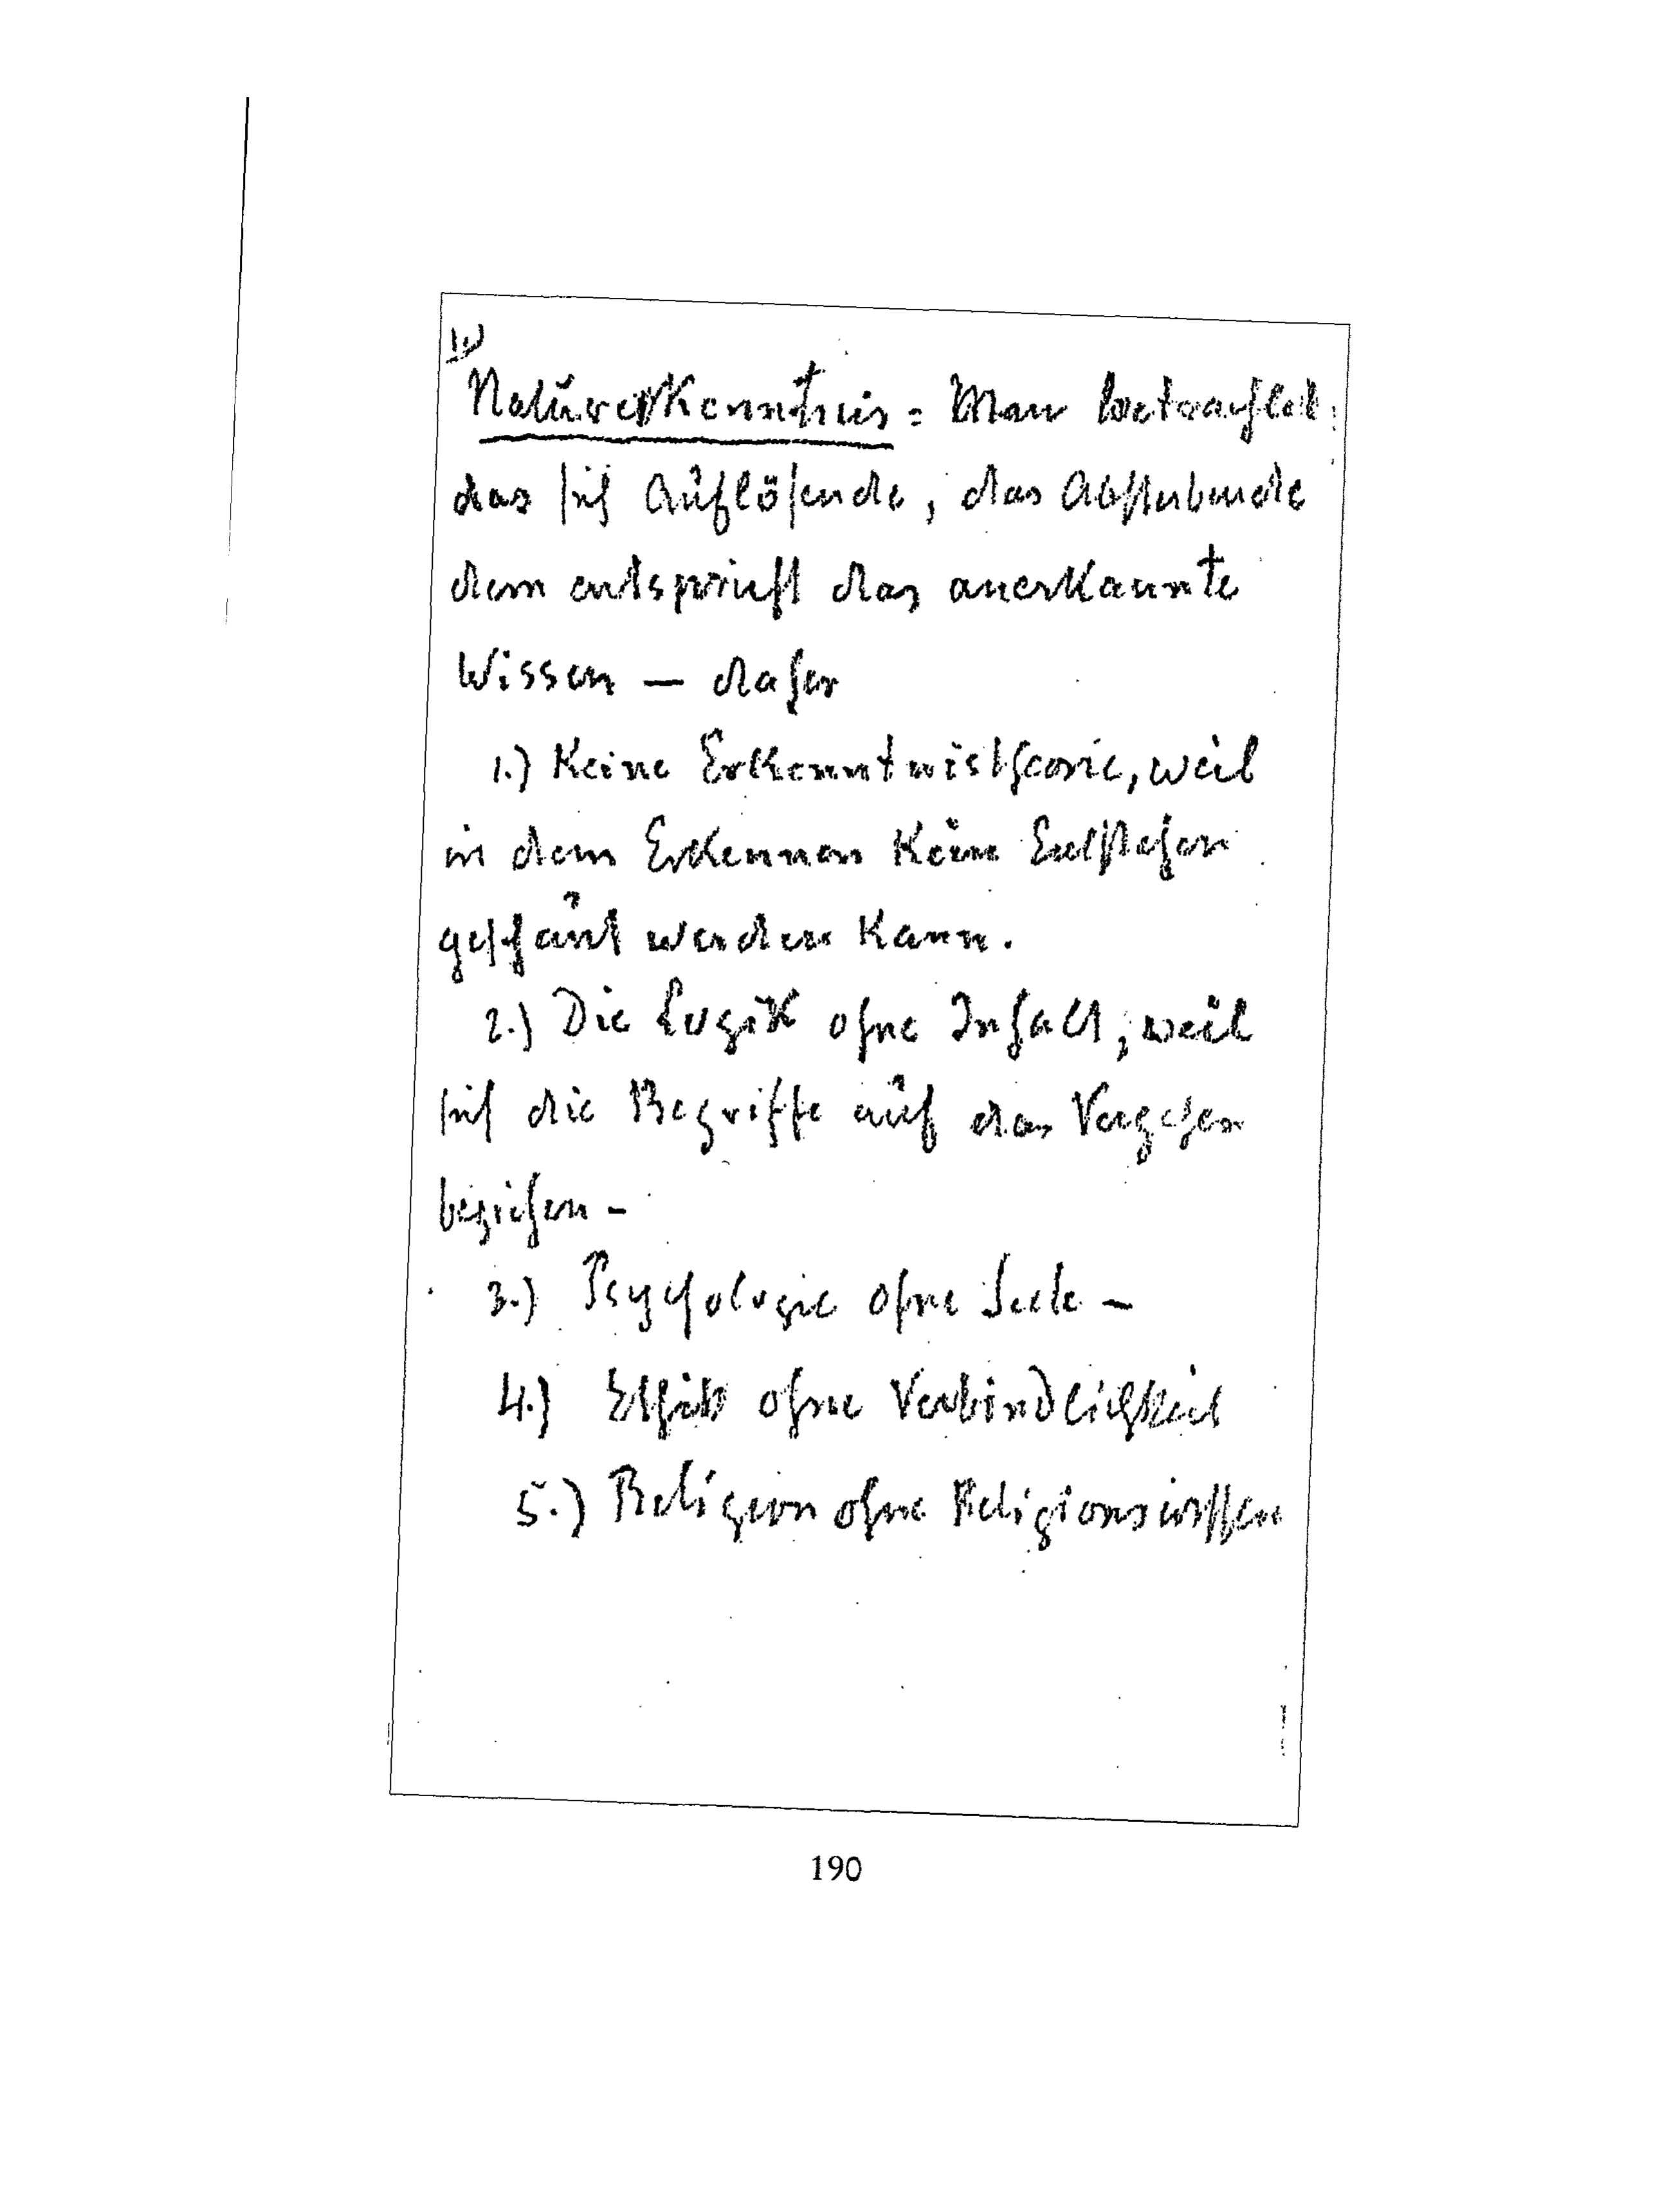 IV
Naturerkenntnis = Man betrachtet:
das sich Auflösende, das Absterbende
dem entspricht das anerkannte
Wissen — daher
1.) Keine Erkenntnistheorie, weil
in dem Erkennen kein Entstehen
geschaut werden kann.
2.) Die Logik ohne Inhalt, weil
sich die Begriffe auf das Vergehen
beziehen -
3.) Psychologie ohne Seele -
4.) Ethik ohne Verbindlichkeit
5.) Religion ohne
190